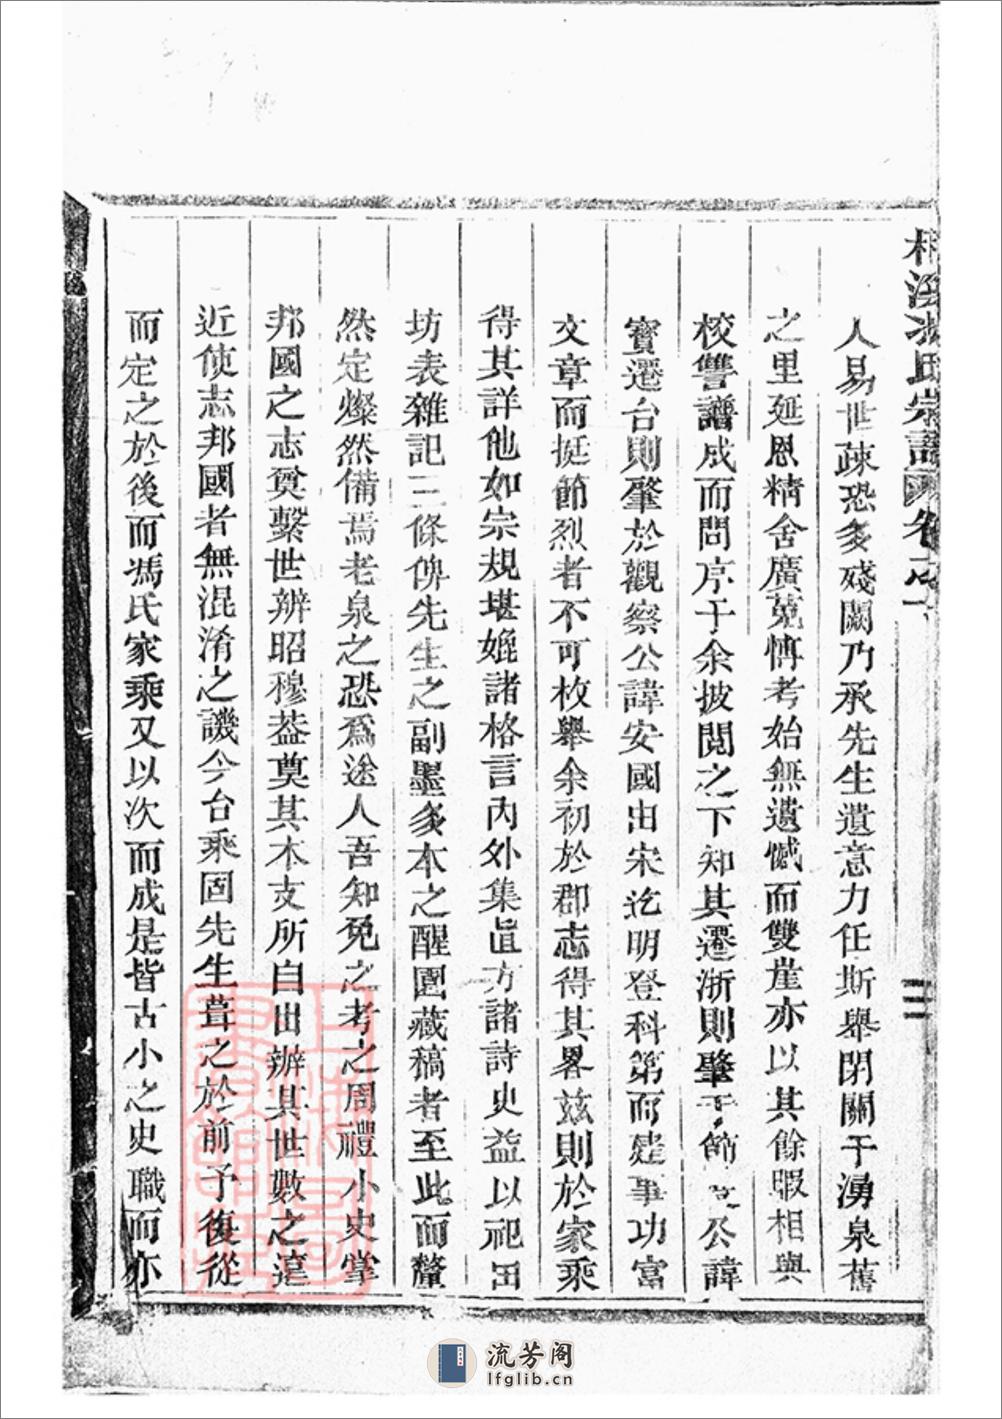 人易世疎恐多殘闕乃承先生遺意力任斯舉閉關于湧泉舊
之里延恩精舍廣蒐愽考始無遺憾而雙崖亦以其餘暇相與
校讐譜成而問序于余披閱之下知其遷浙則肇于節公諱
寳遷台則肇於觀察公諱安國由宋迄明登科第而建事功富
文章而挺節烈者不可枚舉余初於郡志得其畧兹則於家乘
得其詳他如宗規堪媲諸格言內外集直方諸詩史益以祀田
坊表雜記三條俾先生之副墨多本之醒園藏稿者至此而釐
然定燦然備焉老泉之恐爲途人吾知免之考之周禮小史掌
邦國之志奠繫世辨昭穆葢奠其本支所自出辨其世數之遠
近使志邦國者無混淆之譏今台乘固先生葺之於前予復從
而定之於後而馮氏家乘又以次而成是皆古小之史職而亦
氏宗譜
三
流芳阁
lfglib.cn